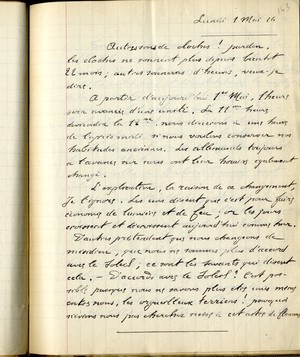 Lundi 1 Mai 16
163
Autres sons de cloches ! pardon,
les cloches ne sonnent plus depuis bientôt
22 mois ; autres sonneries d'heures, veux-je
dire.
A partir d'aujourd'hui 1er Mai, l'heure
sera avancée d'une unité. La 11ème heure
deviendra la 12ème, nous dînerons à une heure
de l'après-midi si nous voulons conserver nos
habitudes anciennes. Les allemands toujours
à l'avance sur nous ont leur horaire également
changé.
L'explication, la raison de ce changement,
je l'ignore. Les uns disent que c'est pour faire
économie de lumière et de feu ; or les jours
croissent et décroissent aujourd'hui comme hier.
D'autres prétendent que nous changeons de
méridien, que nous ne sommes plus d'accord
avec le Soleil ; ce sont les savants qui disent
cela. — D'accord avec le Soleil ! C'est pos-
sible puisque nous ne savons plus être unis même
entre nous, les orgueilleux terriens ! pourquoi
n'irions nous pas chercher noises à cet astre de